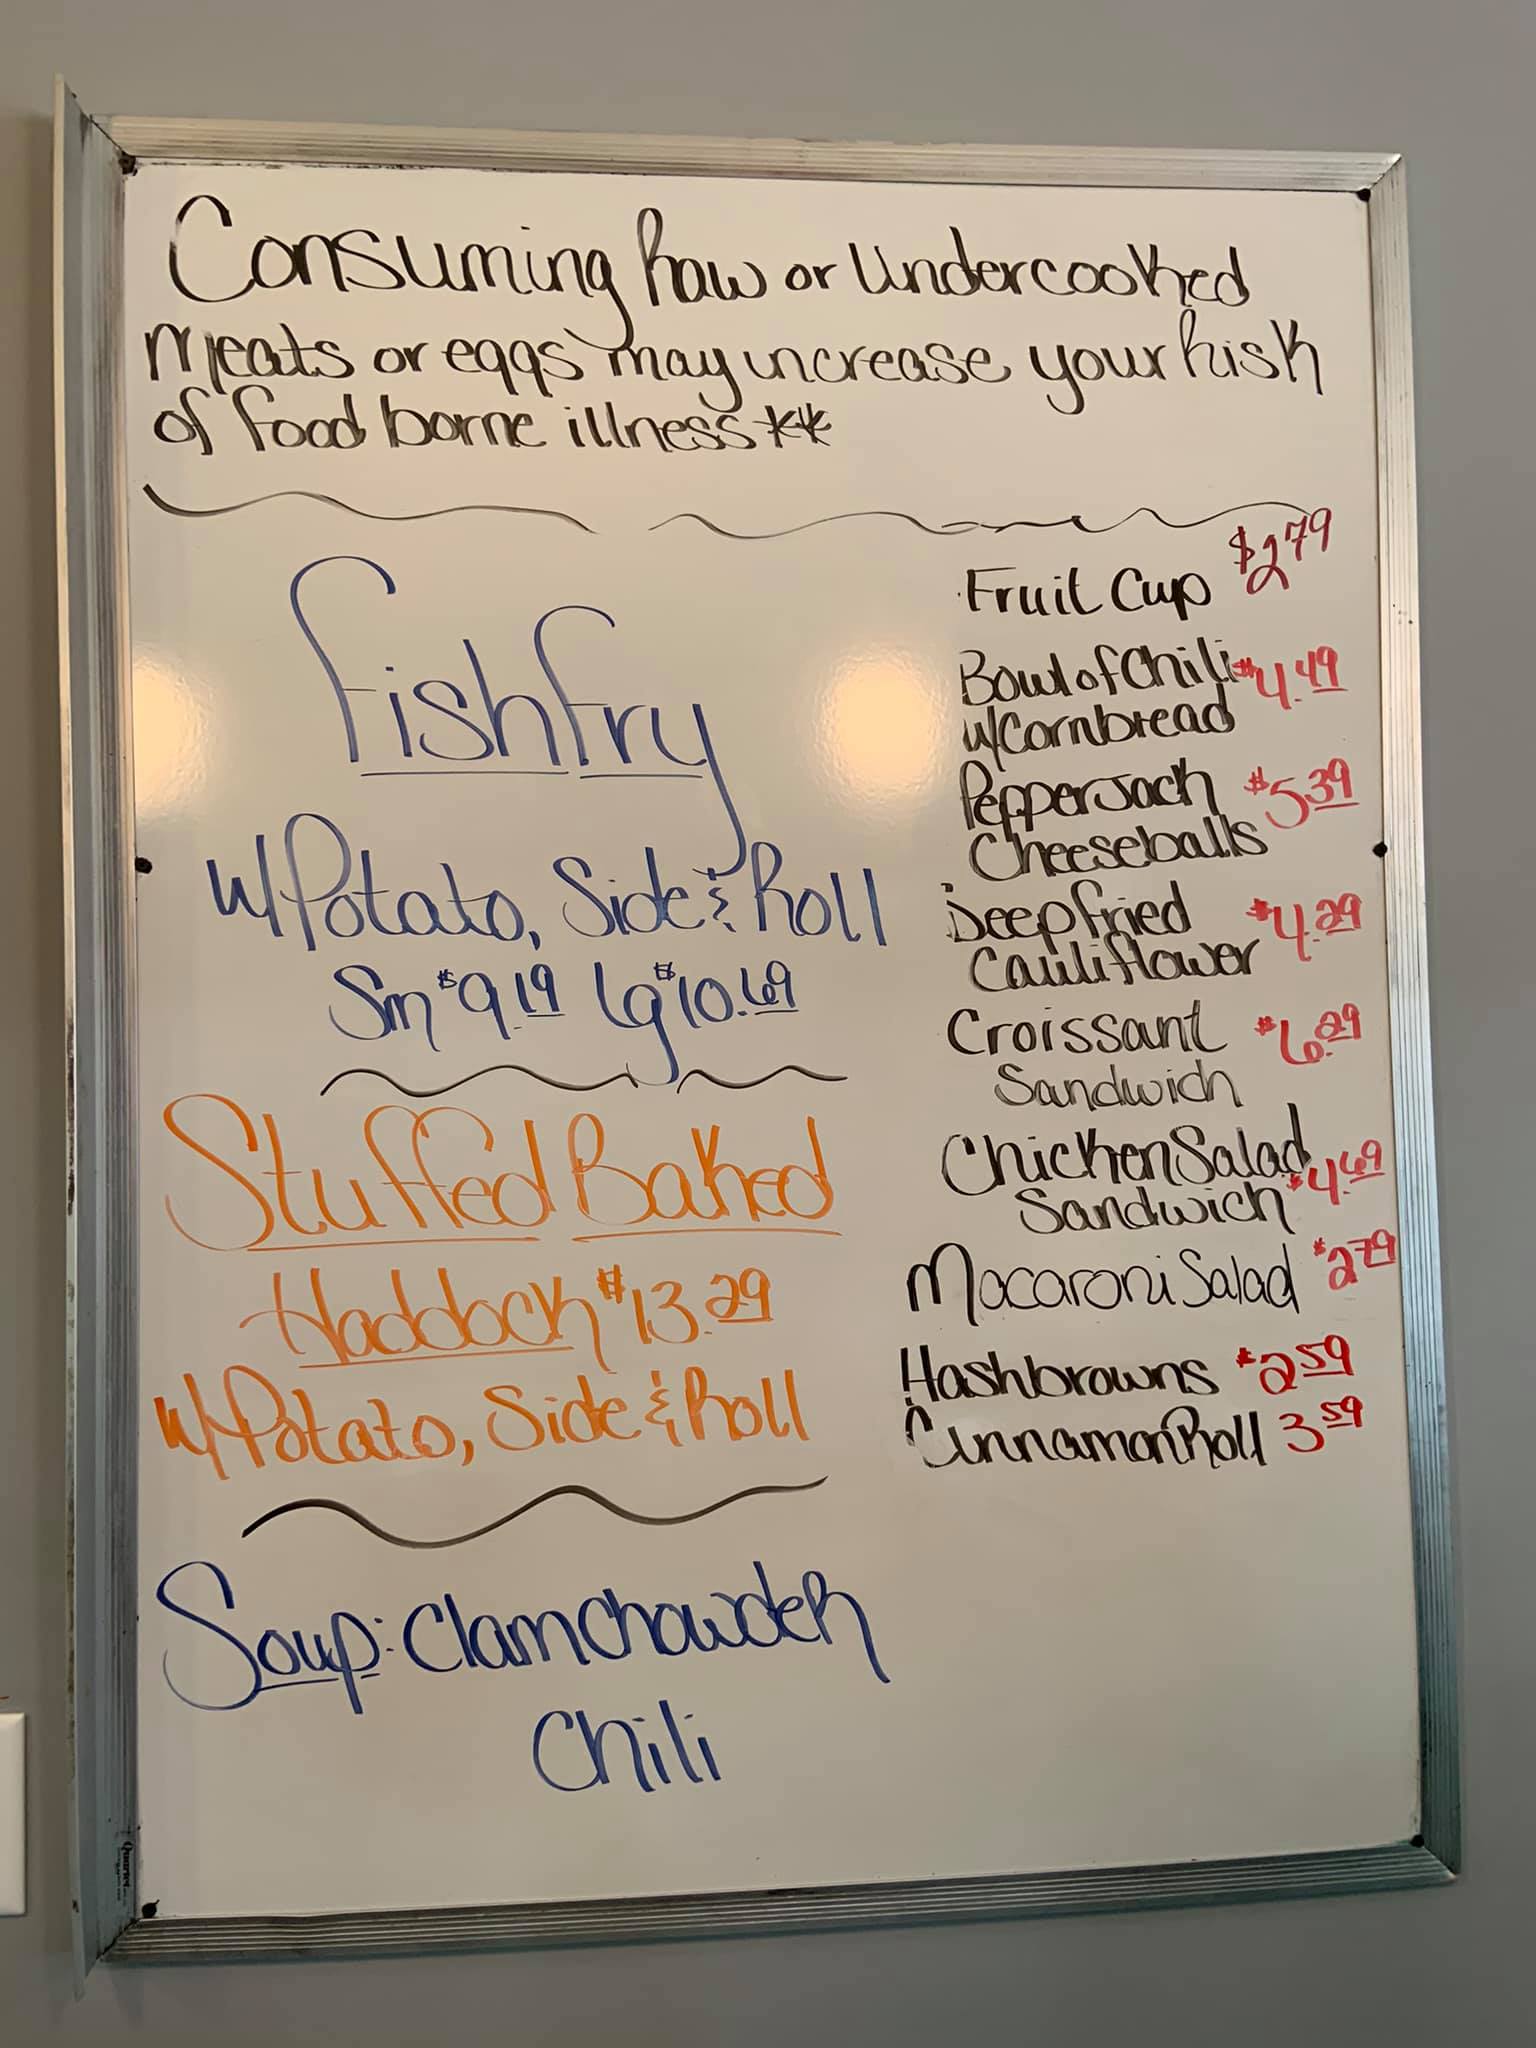 Consuming Raw or Undercooked
meats or eggs may increase your Risk
of food borne illness**
Fish Fry
w/Potato, Side & Roll
Sm $9.19 lg $10.69
Stuffed Baked
Haddock $13.29
w/Potato, Side & Roll
Soup: Clam Chowder
Chili
Fruit Cup $2.79
Bowl of Chili $4.49
w/Cornbread
Pepper Jack $5.39
Cheeseballs
Deep Fried $4.29
Cauliflower
Croissant $6.29
Sandwich
Chicken Salad
Sandwich $4.69
Macaroni Salad $2.79
Hashbrowns $2.59
Cinnamon Roll 3.59
Quartet